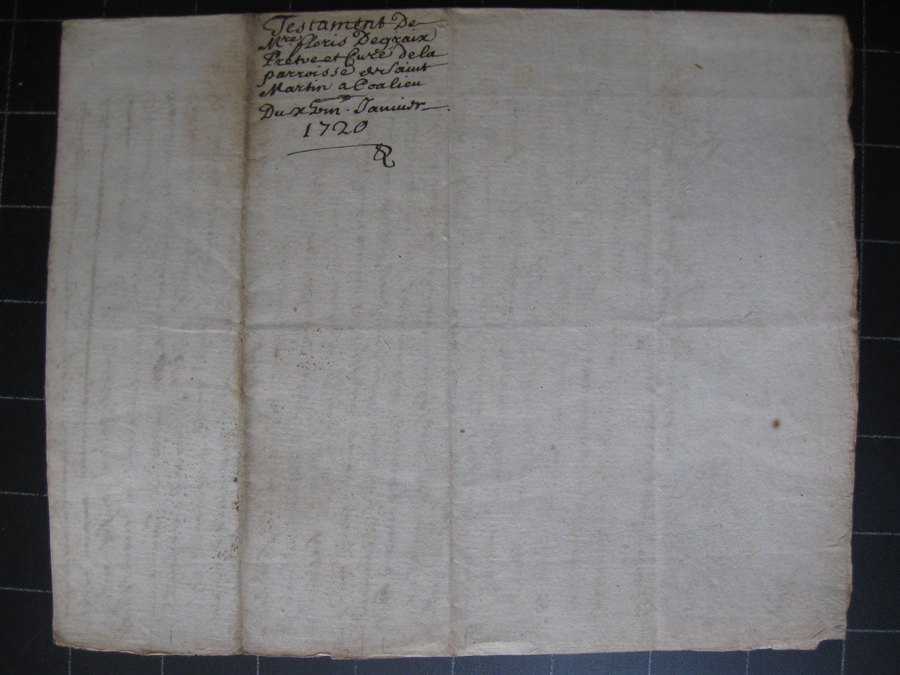 Testament De
Mre. floris Degraix
Pretre et Curé de la
parroisse de Saint
Martin a
Du Janvier
1720